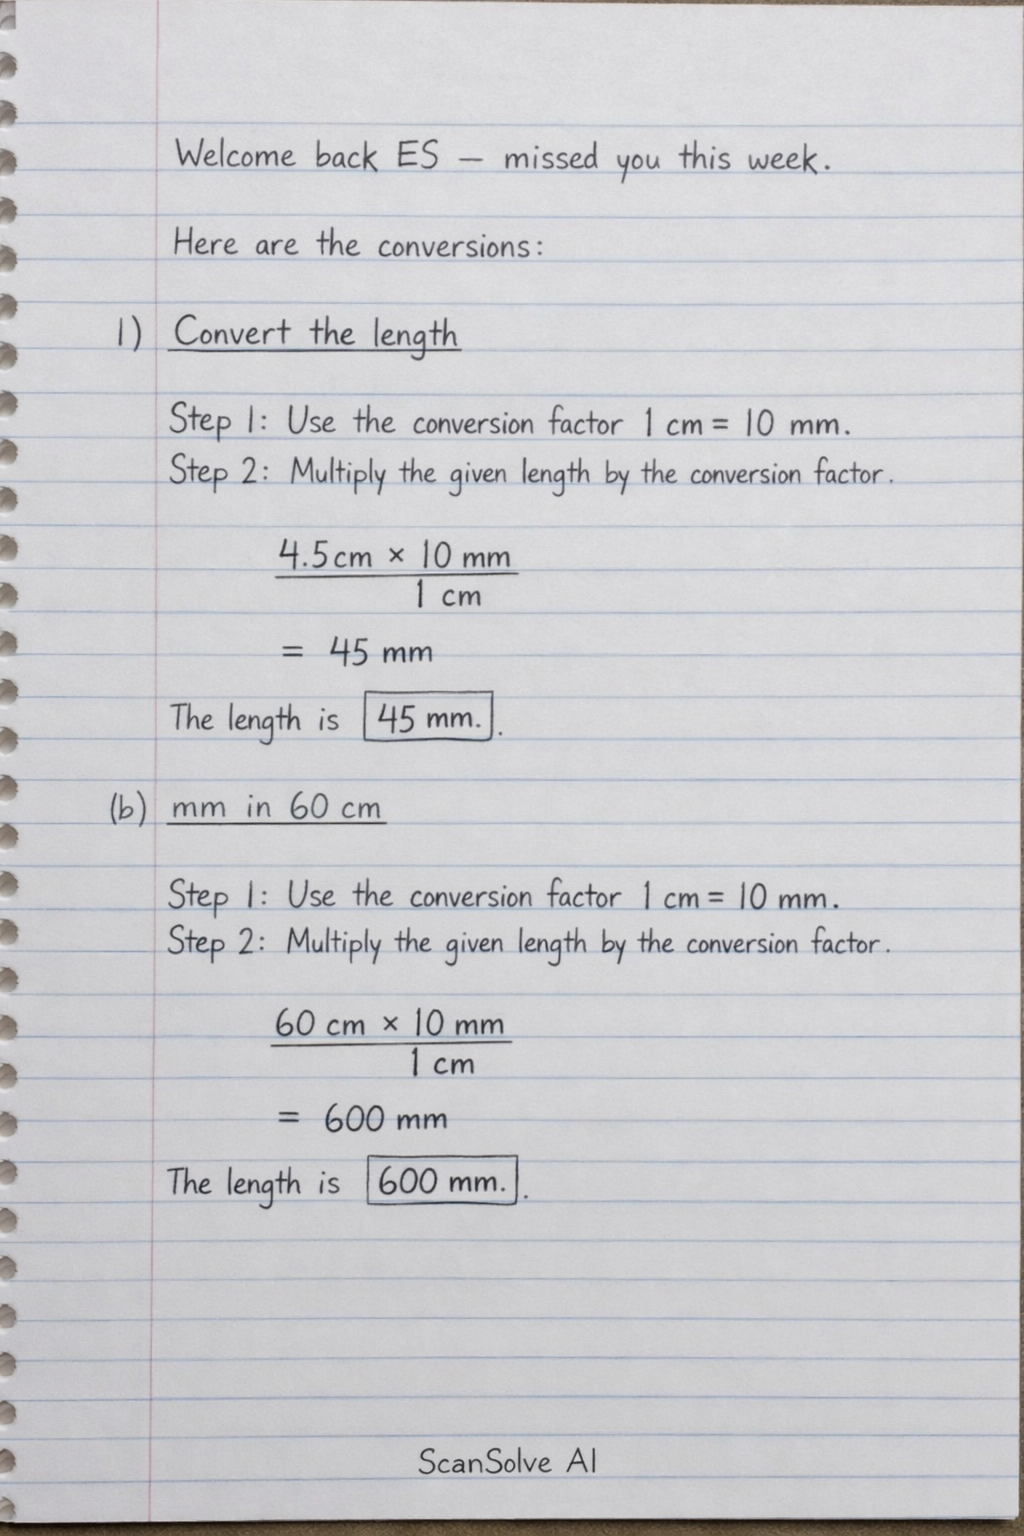 Welcome back ES — missed you this week.
Here are the conversions:
1) Convert the length
Step 1: Use the conversion factor 1 cm = 10 mm.
Step 2: Multiply the given length by the conversion factor.
4.5cm × 10 mm
1 cm
= 45 mm
The length is 45 mm..
(b) mm in 60 cm
Step 1: Use the conversion factor 1 cm = 10 mm.
Step 2: Multiply the given length by the conversion factor.
60 cm × 10 mm
1 cm
= 600 mm
The length is 600 mm..
ScanSolve AI